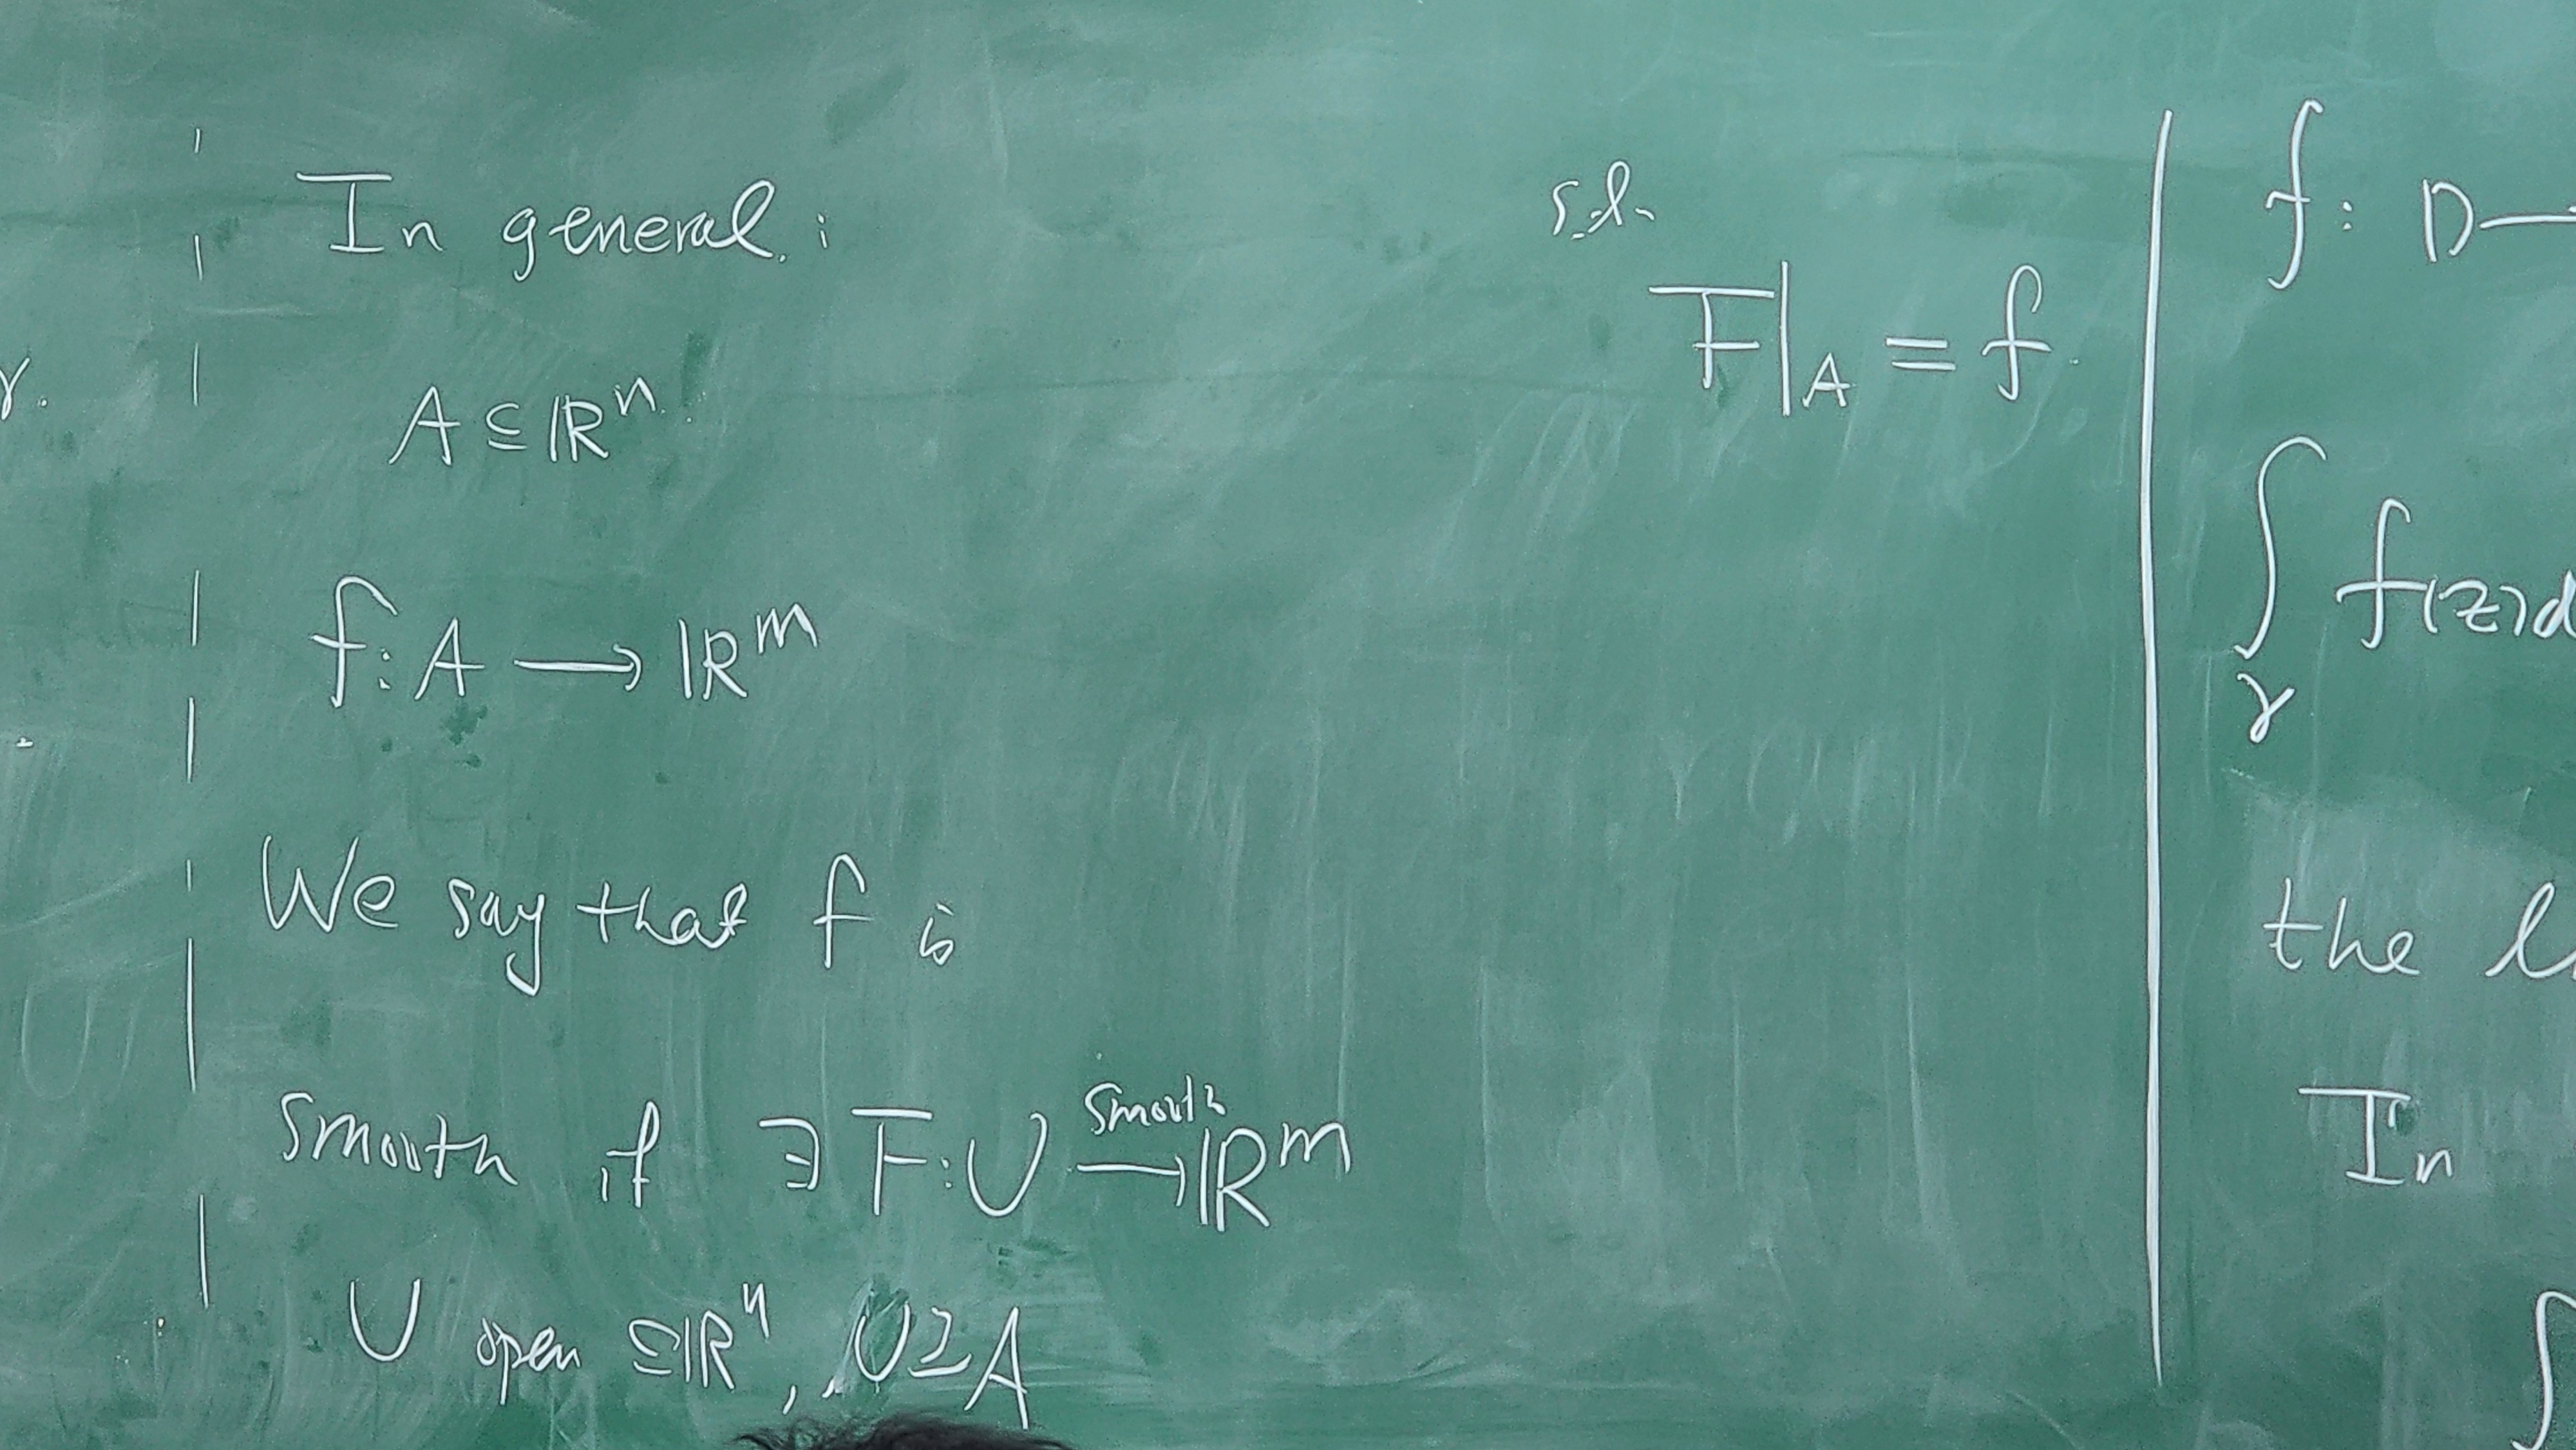 γ.
In general:
A ⊆ ℝⁿ.
f: A ⟶ ℝᵐ
We say that f is
smooth if ∃ F: U ⟶ ℝᵐ
smooth
U open ⊆ ℝⁿ, U ⊇ A
s.t.
F|_A = f.
f: D
∫_γ f(z)d
the
In
∫